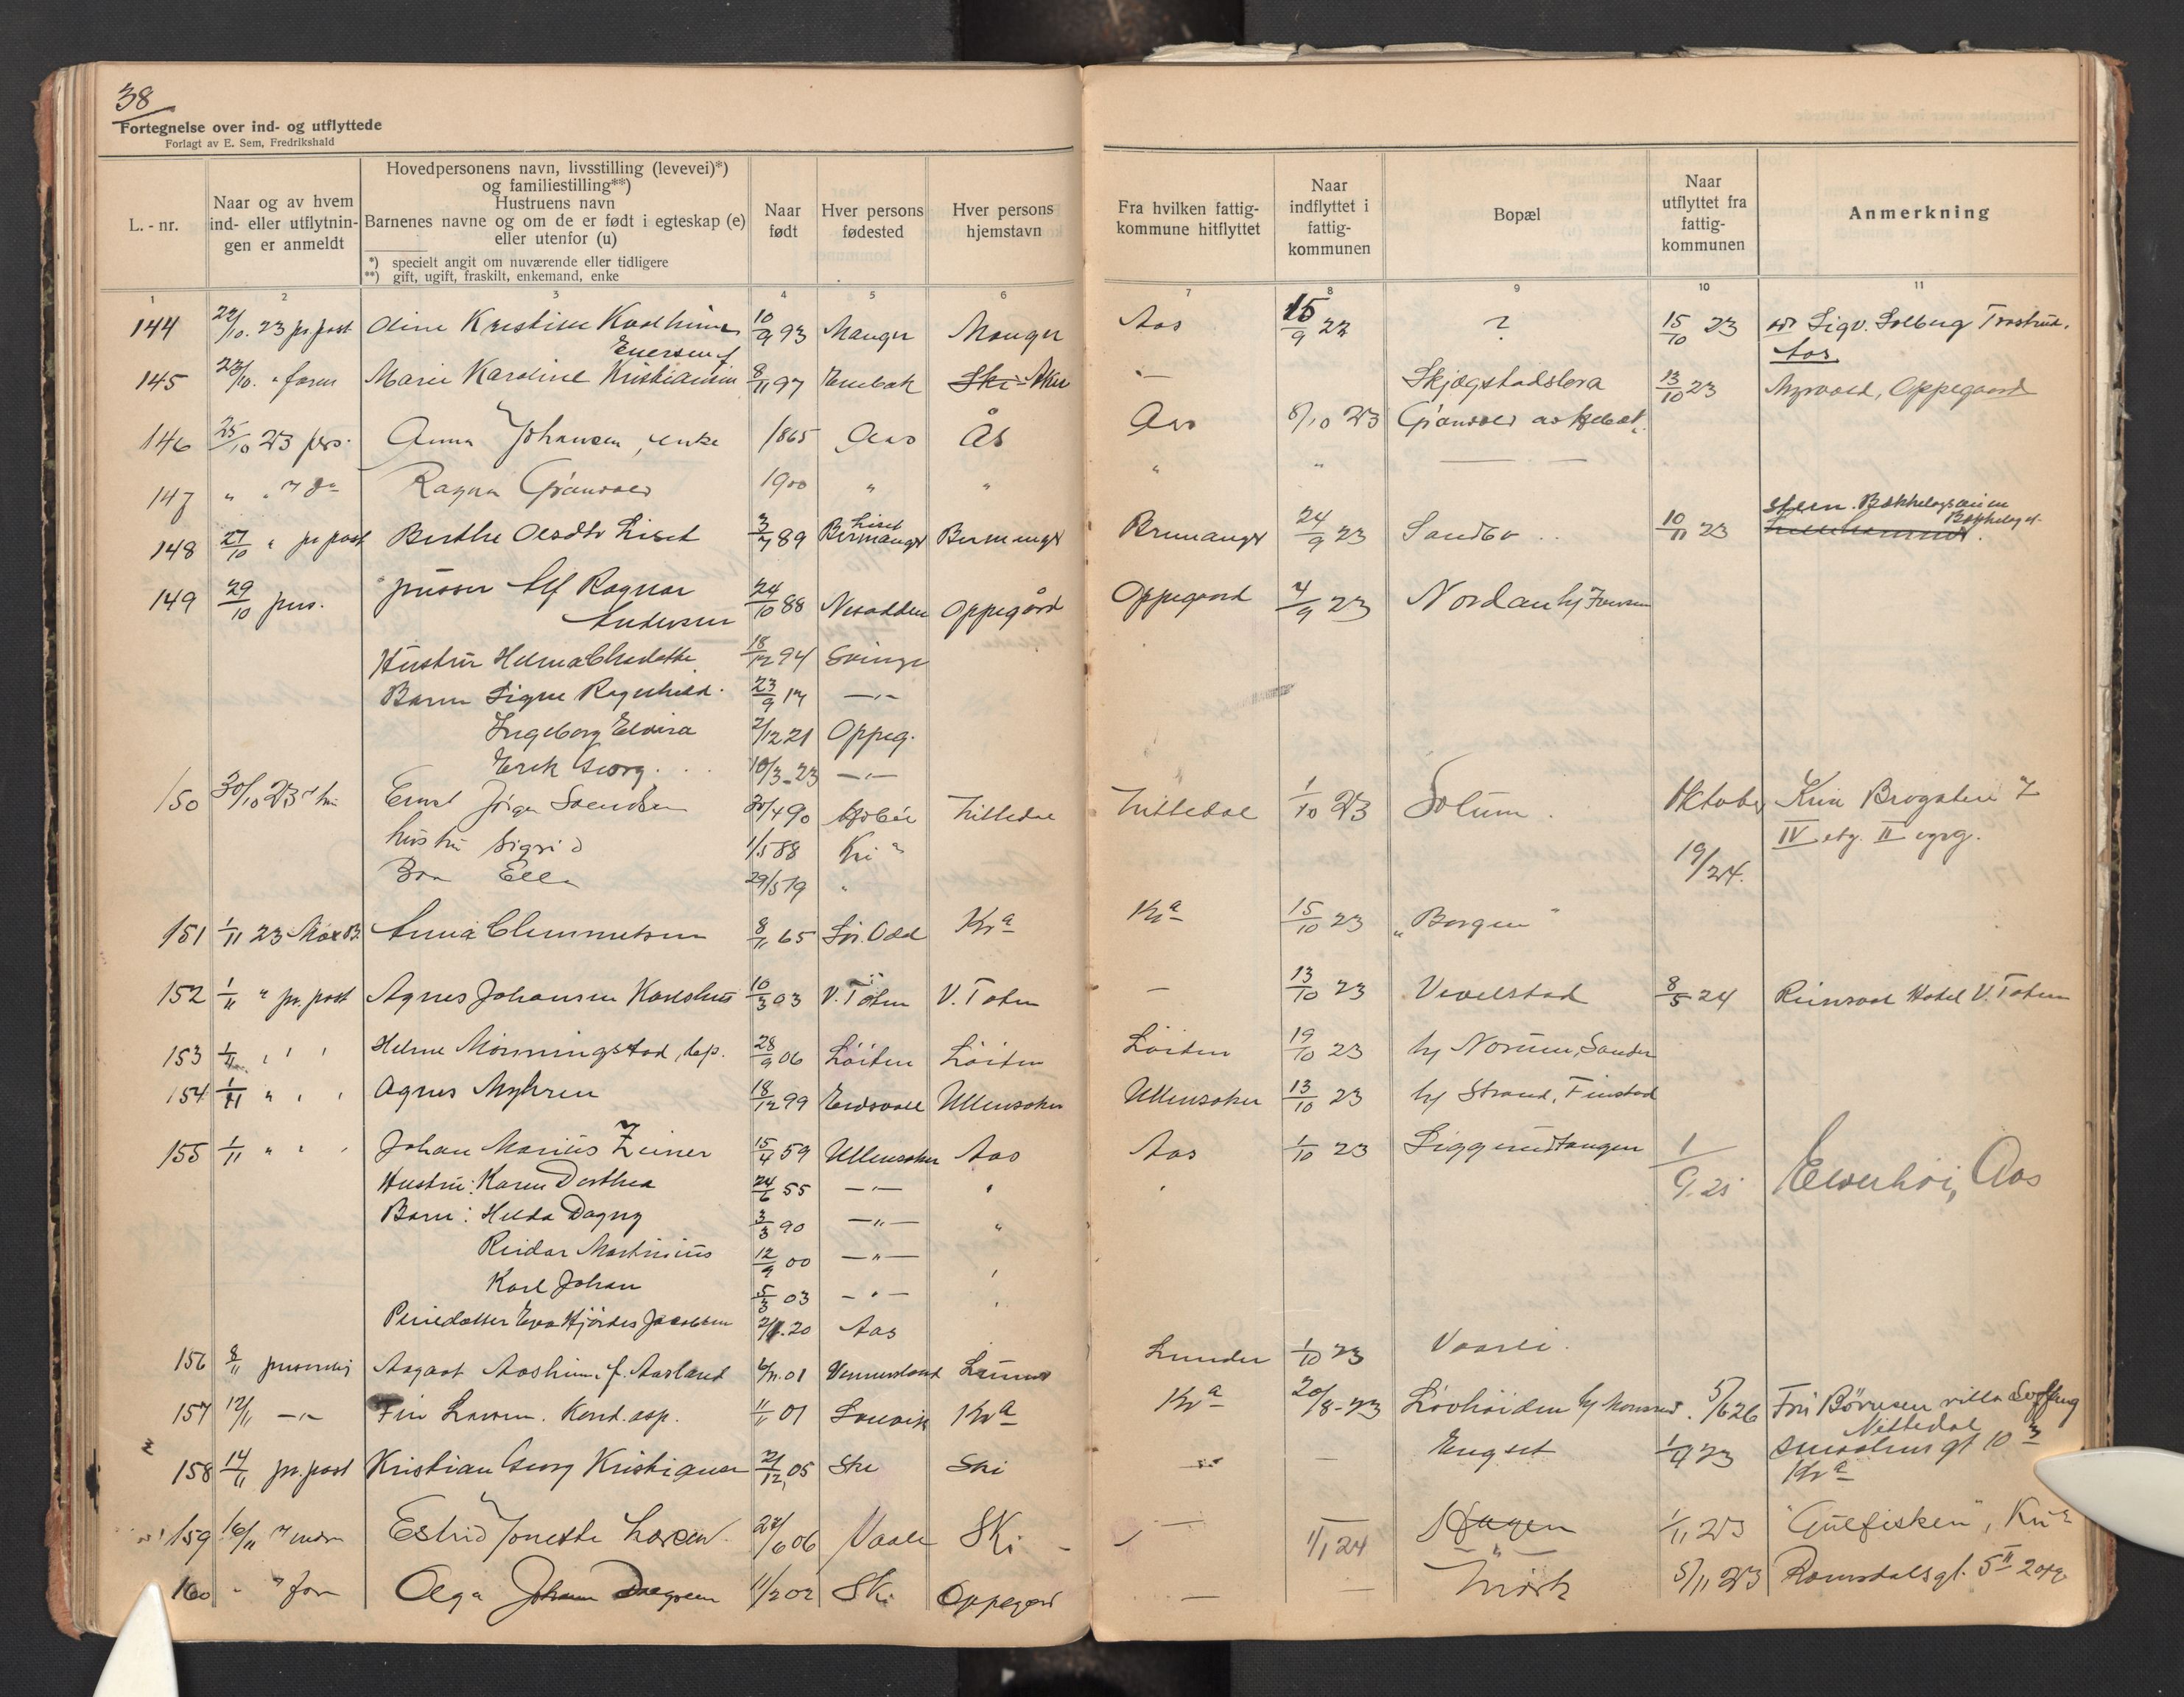 38
Fortegnelse over ind- og utflyttede
Forlagt av E. Sem, Fredrikshald
L. - nr.
Naar og av hvem
ind- eller utflytnin-
gen er anmeldt
Hovedpersonens navn, livsstilling (levevei)*)
og familiestilling**)
Hustruens navn
Barnenes navne og om de er født i egteskap (e)
eller utenfor (u)
*) specielt angit om nuværende eller tidligere
**) gift, ugift, fraskilt, enkemand, enke
Naar
født
Hver persons
fødested
Hver persons
hjemstavn
Fra hvilken fattig-
kommune hitflyttet
Naar
indflyttet i
fattig-
kommunen
Bopæl
Naar
utflyttet fra
fattig-
kommunen
Anmerkning
1 2 3 4 5 6 7 8 9 10 11
144 /10. 23 pr. post Oline Kristine 10/9 93 Manger Manger Aas 15/9 23 ? 15/10 23 Sigv. Solberg
Aas
145 23/10. " Marie Karoline Kristiansen 8/11 97 Enebak Ski Aker — 13/10 23 Myrvold, Oppegaard
146 25/10 23 pers. Anna Johansen, enke 1865 Aas Ås Aas 8/10 23
147 " " Ragna 1900 " " " "
148 27/10 " pr post Berthe Liset 3/7 89 Liset Bremanger 24/9 23 Sandbo 10/11 23
149 29/10 pers. Alf Ragnar
Andersen 24/10 88 Nesodden Oppegård Oppegaard 4/9 23 Nordan
Hustru Helma Charlotte 18/12 94
Barn Signe Ragnhild. 23/9 17 —"—
Ingeborg Elvira 2/12 21 Oppeg.
Erik Georg. 10/3-23 —"—
150 30/10 23 Ernst Jörgen Svendsen 30/4 90 Nittedal Nittedal 1/10 23 Solum Oktober
IV etg. II opg.
hustru Sigrid 1/5 88 Kri a 19/24.
Barn Ella 29/5 19 "
151 1/11 23 Anna Clemmetsen 8/11 65 Kra Kra 15/10 23 "Borgen"
152 1/11 " pr. post Agnes Johansen 10/3 03 V. Toten V. Toten — 13/10 23 Vevelstad 8/5 24 Reinsvol Hotel V. Toten
153 1/11 " " " 28/9 06 Löiten Löiten Löiten 19/10 23 Norum, Sander
154 1/11 " " " Agnes Myhren 18/12 99 Eidsvold Ullensaker Ullensaker 13/10 23 Strand, Finstad
155 1/11 " " " Johan Marius Zeiner 15/4 59 Ullensaker Aas Aas 1/10 23 1/9.25 Elverhöi, Aas
Hustru: Karen Dorthea 24/6 55 —"— "
Barn: Helda Dagny 3/3 90 —"— "
Reidar Martinius 12/9 00 —"—
Karl Johan 5/3 03 —"—
Pleiedatter Eva Hjördes Jacobsen 2/1.20 Aas
156 8/11 personlig Aagaat f. Aasland .01 Vennesland Lunner Lunder 1/10 23 Vaarli.
157 12/11 —"— Finn Larsen. Kond. asp. 11/11 01 Kra Kra 20/8-23 Lövhöiden 5/6 26 Fru Börresen villa
Nittedal
158 14/11 pr. post Kristian Georg Kristiansen 21/12 05 Ski Ski — — Engset 1/11 23 Smaalensgt 10
Kra
159 16/11 Estrid Jonette Larsen 06 Vaale Ski — 1/1 24 Hagen 1/11 23 "Gulfisken", Kra
160 " Olga 11/2 02 Ski Oppegård — — Mörk 5/11 23 Romsdalsgt. 5 II 2 opg